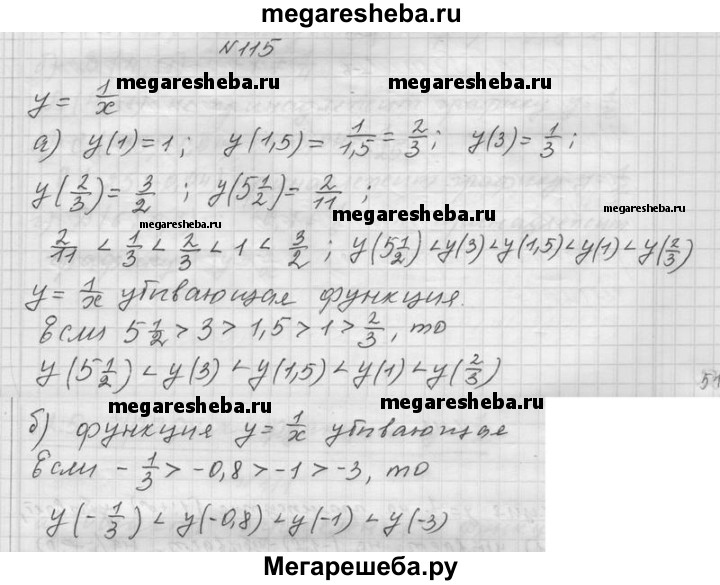 megaresheba.ru
№115
megaresheba.ru megaresheba.ru
y = 1/x
а) y(1)=1; y(1,5)= 1/1,5 = 2/3; y(3)= 1/3;
y(2/3)= 3/2 ; y(5 1/2)= 2/11 ;
megaresheba.ru megaresheba.ru
2/11 < 1/3 < 2/3 < 1 < 3/2 ; y(5 1/2)<y(3)<y(1,5)<y(1)<y(2/3)
y= 1/x убывающая функция.
Если 5 1/2 > 3 > 1,5 > 1 > 2/3, то
y(5 1/2) < y(3) < y(1,5) < y(1) < y(2/3)
51
megaresheba.ru megaresheba.ru
б) функция y= 1/x убывающая
Если - 1/3 > -0,8 > -1 > -3, то
y(- 1/3) < y(-0,8) < y(-1) < y(-3)
Мегарешеба.ру